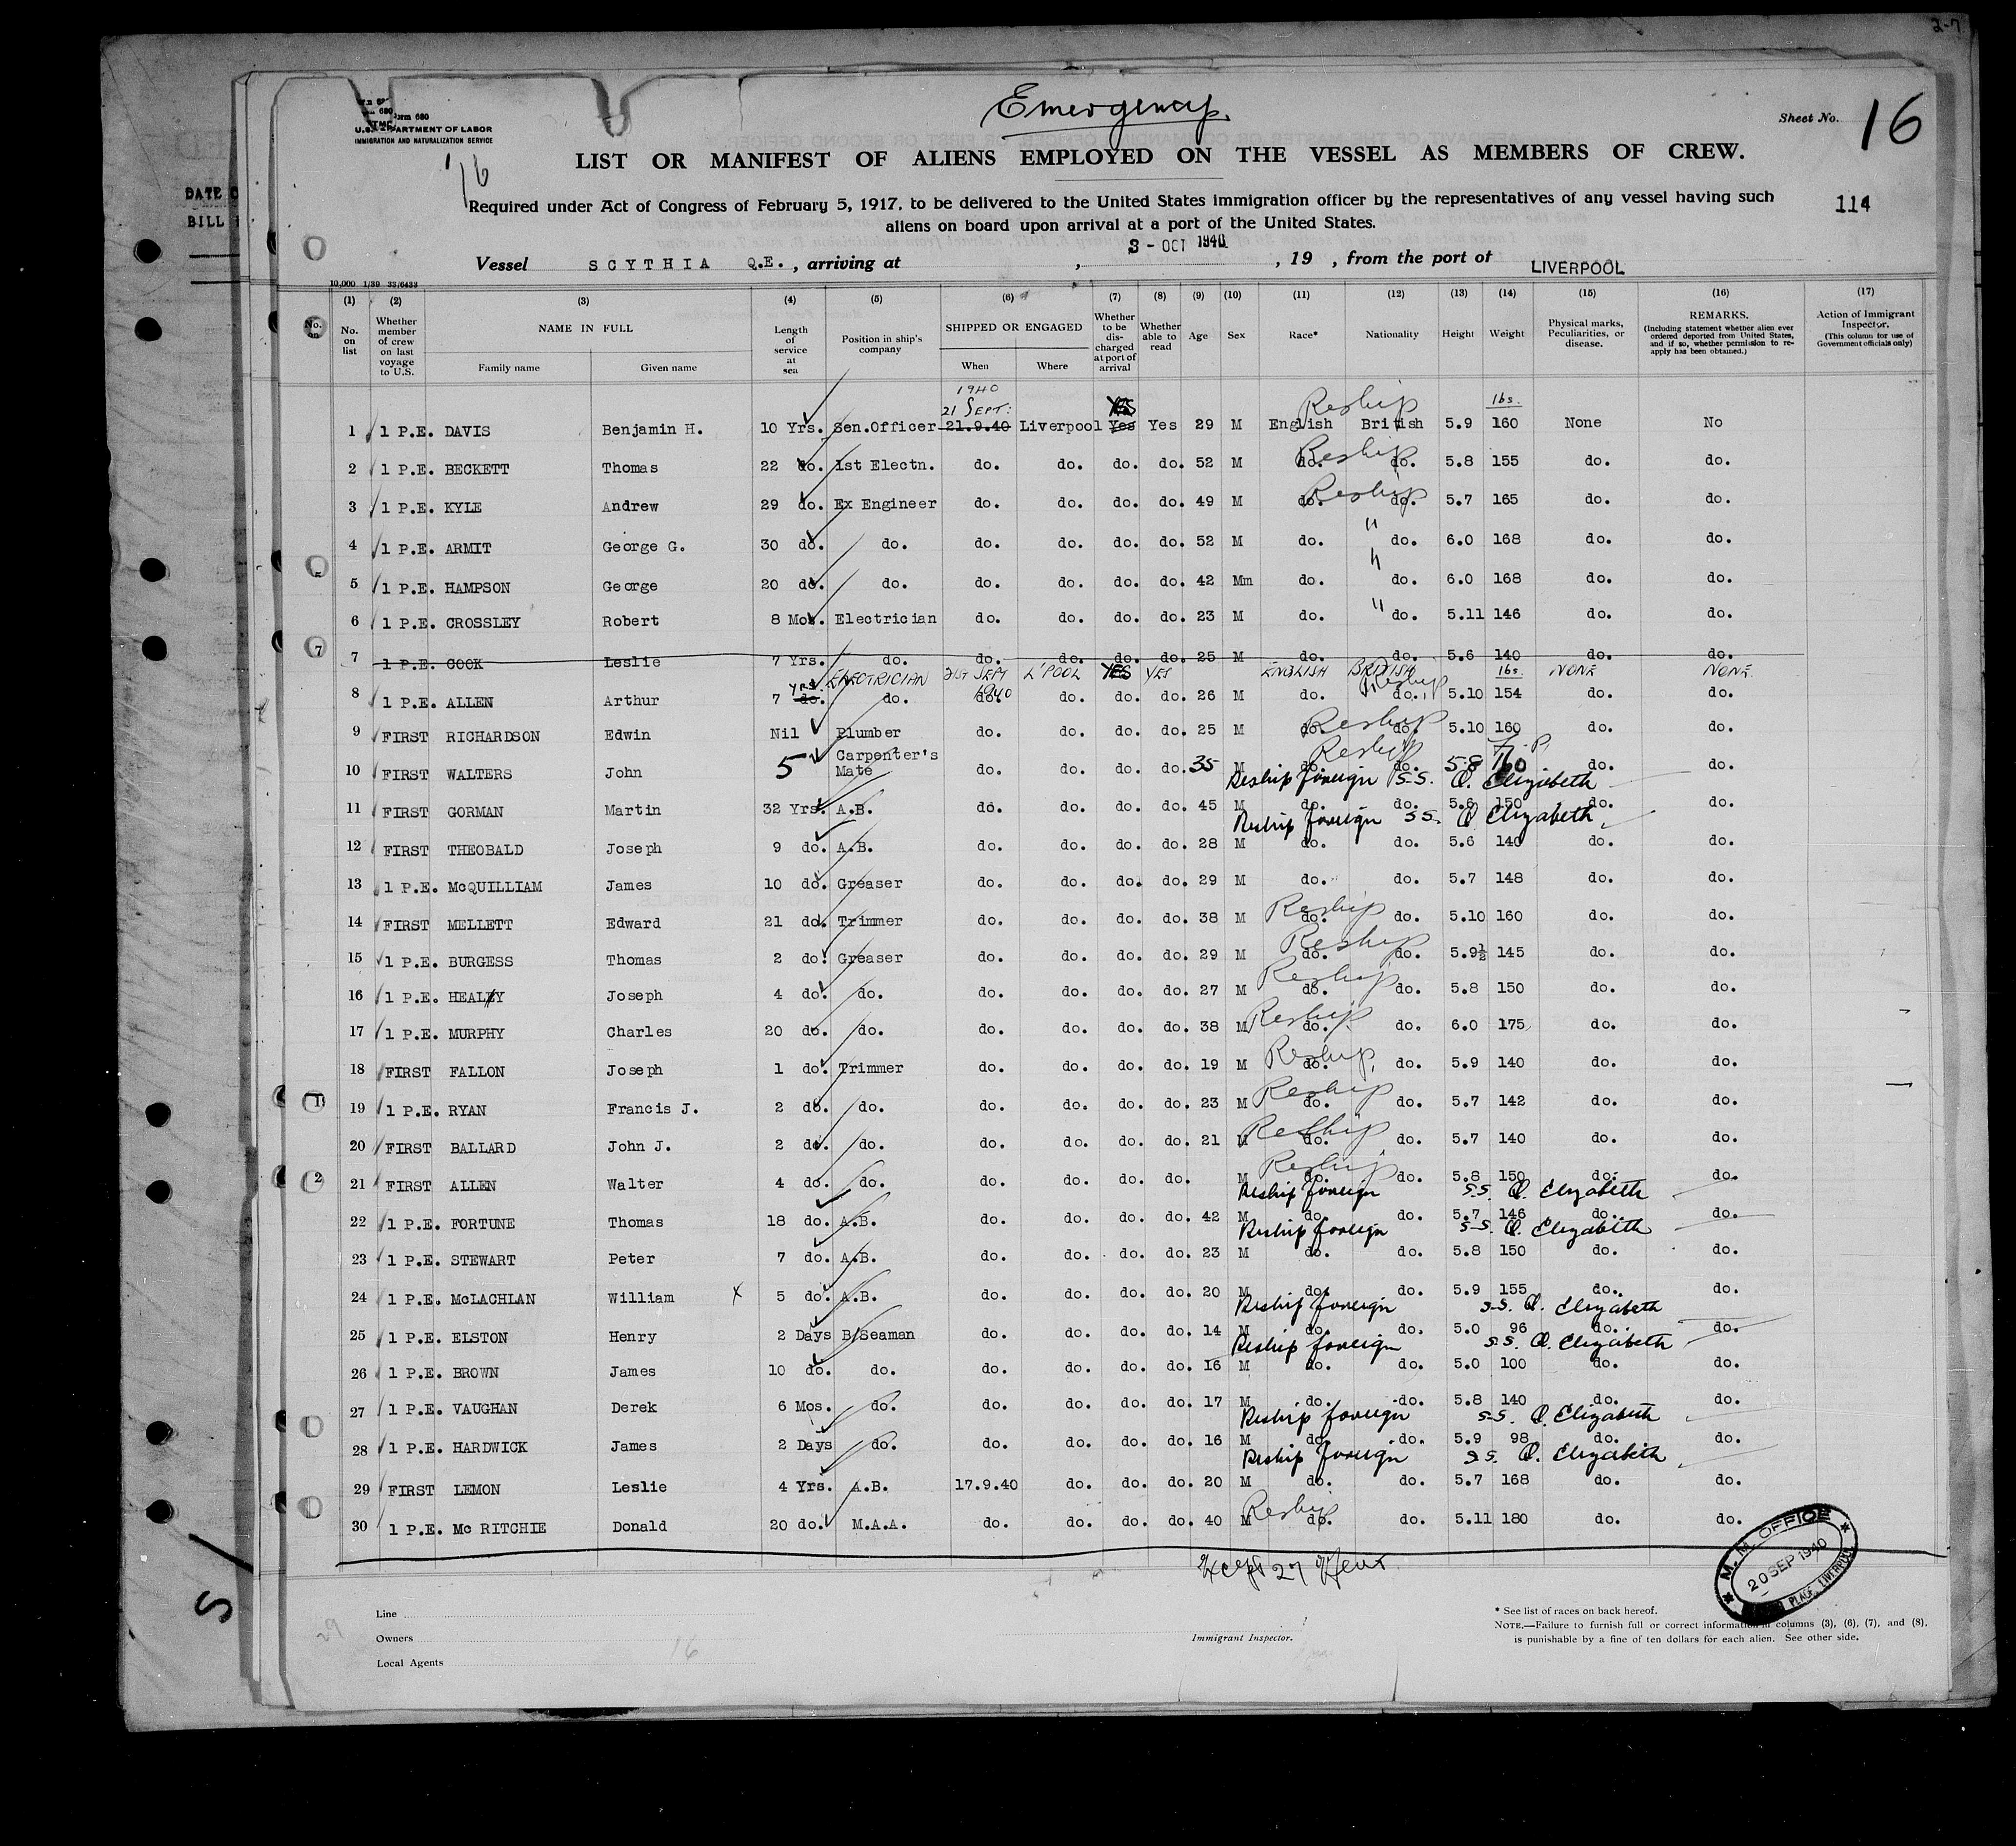 2-7
Emergency.
Form 680
U.S. DEPARTMENT OF LABOR
IMMIGRATION AND NATURALIZATION SERVICE
Sheet No. 16
16
LIST OR MANIFEST OF ALIENS EMPLOYED ON THE VESSEL AS MEMBERS OF CREW.
Required under Act of Congress of February 5, 1917, to be delivered to the United States immigration officer by the representatives of any vessel having such
114
aliens on board upon arrival at a port of the United States.
DATE
BILL
Vessel SCYTHIA Q.E., arriving at , 3 - OCT 1940, 19 , from the port of LIVERPOOL
10,000 1/39 33/6433
(1) (2) (3) (4) (5) (6) (7) (8) (9) (10) (11) (12) (13) (14) (15) (16) (17)
No. on list
Whether member of crew on last voyage to U.S.
NAME IN FULL
Family name Given name
Length of service at sea
Position in ship's company
SHIPPED OR ENGAGED
When Where
Whether to be discharged at port of arrival
Whether able to read
Age Sex Race* Nationality Height Weight
Physical marks, Peculiarities, or disease.
REMARKS.
(Including statement whether alien ever ordered deported from United States, and if so, whether permission to reapply has been obtained.)
Action of Immigrant Inspector.
(This column for use of Government officials only)
1940
21 SEPT: YES Reship lbs.
1 1 P.E. DAVIS Benjamin H. 10 Yrs. Sen.Officer 21.9.40 Liverpool Yes Yes 29 M English British 5.9 160 None No
Reship
2 1 P.E. BECKETT Thomas 22 do. 1st Electn. do. do. do. do. 52 M do. do. 5.8 155 do. do.
Reship
3 1 P.E. KYLE Andrew 29 do. Ex Engineer do. do. do. do. 49 M do. do. 5.7 165 do. do.
"
4 1 P.E. ARMIT George G. 30 do. do. do. do. do. do. 52 M do. do. 6.0 168 do. do.
"
5 1 P.E. HAMPSON George 20 do. do. do. do. do. do. 42 Mm do. do. 6.0 168 do. do.
"
6 1 P.E. CROSSLEY Robert 8 Mos. Electrician do. do. do. do. 23 M do. do. 5.11 146 do. do.
7 1 P.E. COOK Leslie 7 Yrs. do. do. do. do. do. 25 M do. do. 5.6 140 do. do.
YRS ELECTRICIAN 21ST SEPT 1940 L'POOL YES YES ENGLISH BRITISH lbs. NONE NONE.
Reship
8 1 P.E. ALLEN Arthur 7 do. do. do. do. do. do. 26 M do. do. 5.10 154 do. do.
Reship
9 FIRST RICHARDSON Edwin Nil Plumber do. do. do. do. 25 M do. do. 5.10 160 do. do.
Reship
10 FIRST WALTERS John 5 Carpenter's Mate do. do. do. do. 35 M do. do. 5.8 160 do. do.
Reship foreign S.S. Q. Elizabeth
11 FIRST GORMAN Martin 32 Yrs. A.B. do. do. do. do. 45 M do. do. 5.6 150 do. do.
Reship foreign S.S. Q Elizabeth
12 FIRST THEOBALD Joseph 9 do. A.B. do. do. do. do. 28 M do. do. 5.6 140 do. do.
13 1 P.E. McQUILLIAM James 10 do. Greaser do. do. do. do. 29 M do. do. 5.7 148 do. do.
Reship
14 FIRST MELLETT Edward 21 do. Trimmer do. do. do. do. 38 M do. do. 5.10 160 do. do.
Reship
15 1 P.E. BURGESS Thomas 2 do. Greaser do. do. do. do. 29 M do. do. 5.9½ 145 do. do.
Reship
16 1 P.E. HEALY Joseph 4 do. do. do. do. do. do. 27 M do. do. 5.8 150 do. do.
Reship
17 1 P.E. MURPHY Charles 20 do. do. do. do. do. do. 38 M do. do. 6.0 175 do. do.
Reship
18 FIRST FALLON Joseph 1 do. Trimmer do. do. do. do. 19 M do. do. 5.9 140 do. do.
Reship
19 1 P.E. RYAN Francis J. 2 do. do. do. do. do. do. 23 M do. do. 5.7 142 do. do.
Reship
20 FIRST BALLARD John J. 2 do. do. do. do. do. do. 21 M do. do. 5.7 140 do. do.
Reship
21 FIRST ALLEN Walter 4 do. do. do. do. do. do. M do. do. 5.8 150 do. do.
Reship foreign S.S. Q. Elizabeth
22 1 P.E. FORTUNE Thomas 18 do. A.B. do. do. do. do. 42 M do. do. 5.7 146 do. do.
Reship foreign S.S. Q. Elizabeth
23 1 P.E. STEWART Peter 7 do. A.B. do. do. do. do. 23 M do. do. 5.8 150 do. do.
24 1 P.E. McLACHLAN William X 5 do. A.B. do. do. do. do. 20 M do. do. 5.9 155 do. do.
Reship foreign S.S. Q. Elizabeth
25 1 P.E. ELSTON Henry 2 Days B/Seaman do. do. do. do. 14 M do. do. 5.0 96 do. do.
Reship foreign S.S. Q. Elizabeth
26 1 P.E. BROWN James 10 do. do. do. do. do. do. 16 M do. do. 5.0 100 do. do.
27 1 P.E. VAUGHAN Derek 6 Mos. do. do. do. do. do. 17 M do. do. 5.8 140 do. do.
Reship foreign S.S. Q. Elizabeth
28 1 P.E. HARDWICK James 2 Days do. do. do. do. do. 16 M do. do. 5.9 98 do. do.
Reship foreign S.S. Q. Elizabeth
29 FIRST LEMON Leslie 4 Yrs. A.B. 17.9.40 do. do. do. 20 M do. do. 5.7 168 do. do.
Reship
30 1 P.E. Mc RITCHIE Donald 20 do. M.A.A. do. do. do. do. 40 M do. do. 5.11 180 do. do.
27
M. M. OFFICE
20 SEP 1940
PLACE, LIVERPOOL
Line
Owners
Local Agents
16
29
Immigrant Inspector.
* See list of races on back hereof.
NOTE.—Failure to furnish full or correct information in columns (3), (6), (7), and (8),
is punishable by a fine of ten dollars for each alien. See other side.